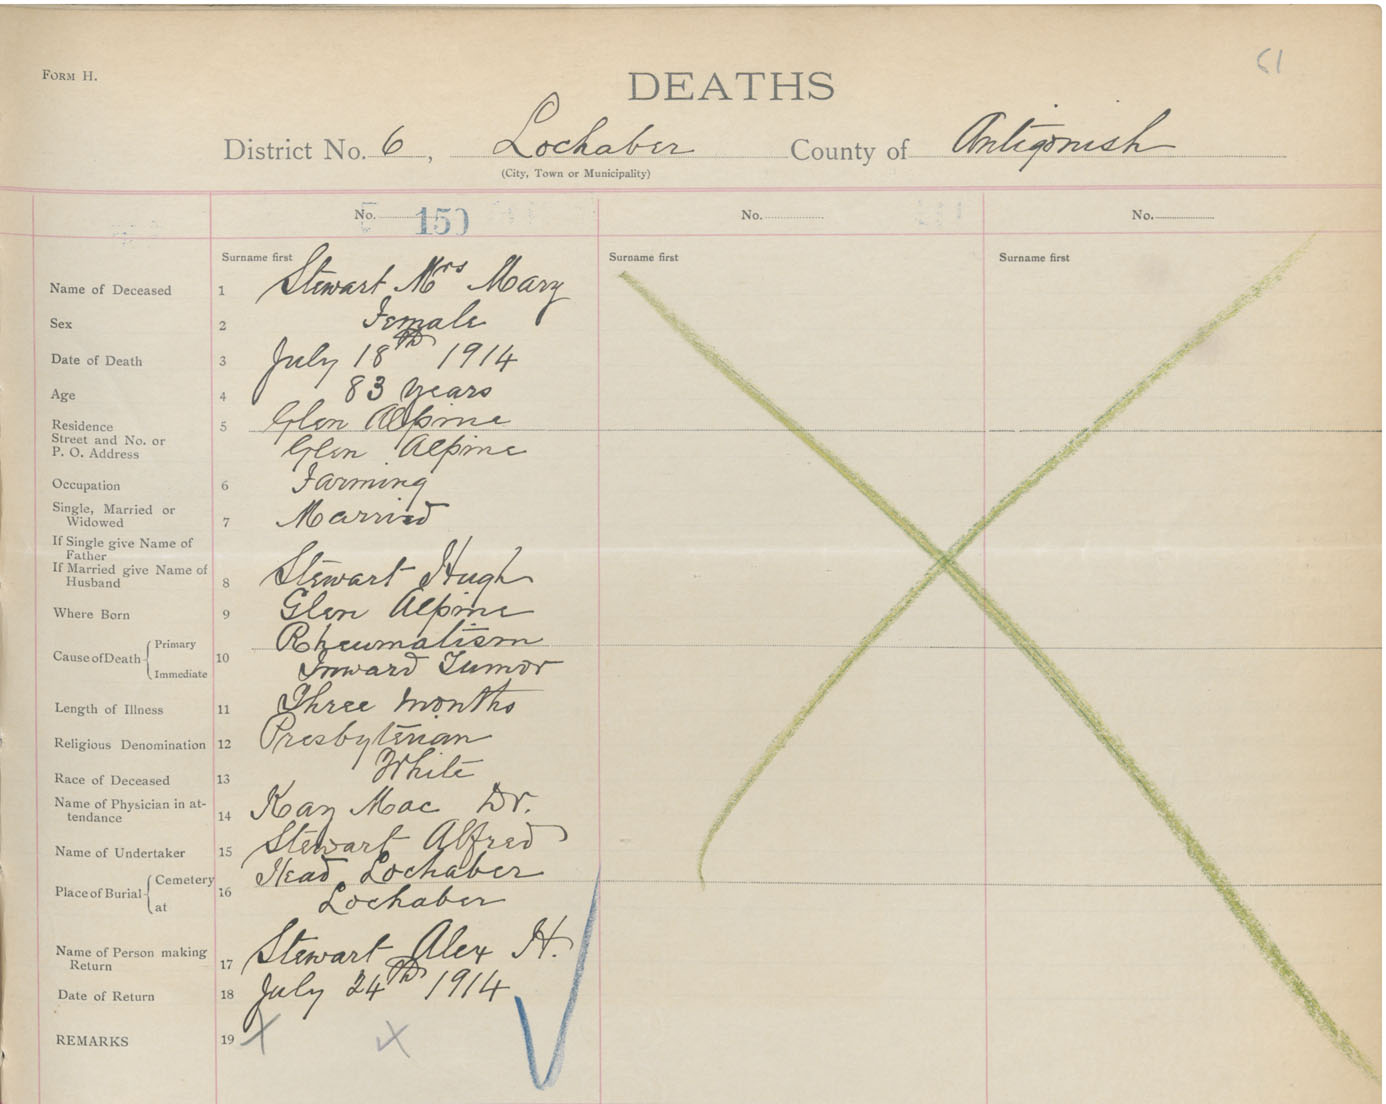 61
FORM H.
DEATHS
District No. 6, Lochaber County of Antigonish
(City, Town or Municipality)
No. 150 No. No.
Surname first Surname first Surname first
Name of Deceased 1 Stewart Mrs Mary
Sex 2 Female
Date of Death 3 July 18th 1914
Age 4 83 years
Residence 5 Glen Alpine
Street and No. or
P. O. Address Glen Alpine
Occupation 6 Farming
Single, Married or
Widowed 7 Married
If Single give Name of
Father
If Married give Name of
Husband 8 Stewart Hugh
Where Born 9 Glen Alpine
Cause of Death 10 Primary Rheumatism
Immediate Inward Tumor
Length of Illness 11 Three months
Religious Denomination 12 Presbyterian
Race of Deceased 13 White
Name of Physician in at-
tendance 14 Kay Mac Dr.
Name of Undertaker 15 Stewart Alfred
Place of Burial 16 Cemetery Head Lochaber
at Lochaber
Name of Person making
Return 17 Stewart Alex H.
Date of Return 18 July 24th 1914
REMARKS 19 X X